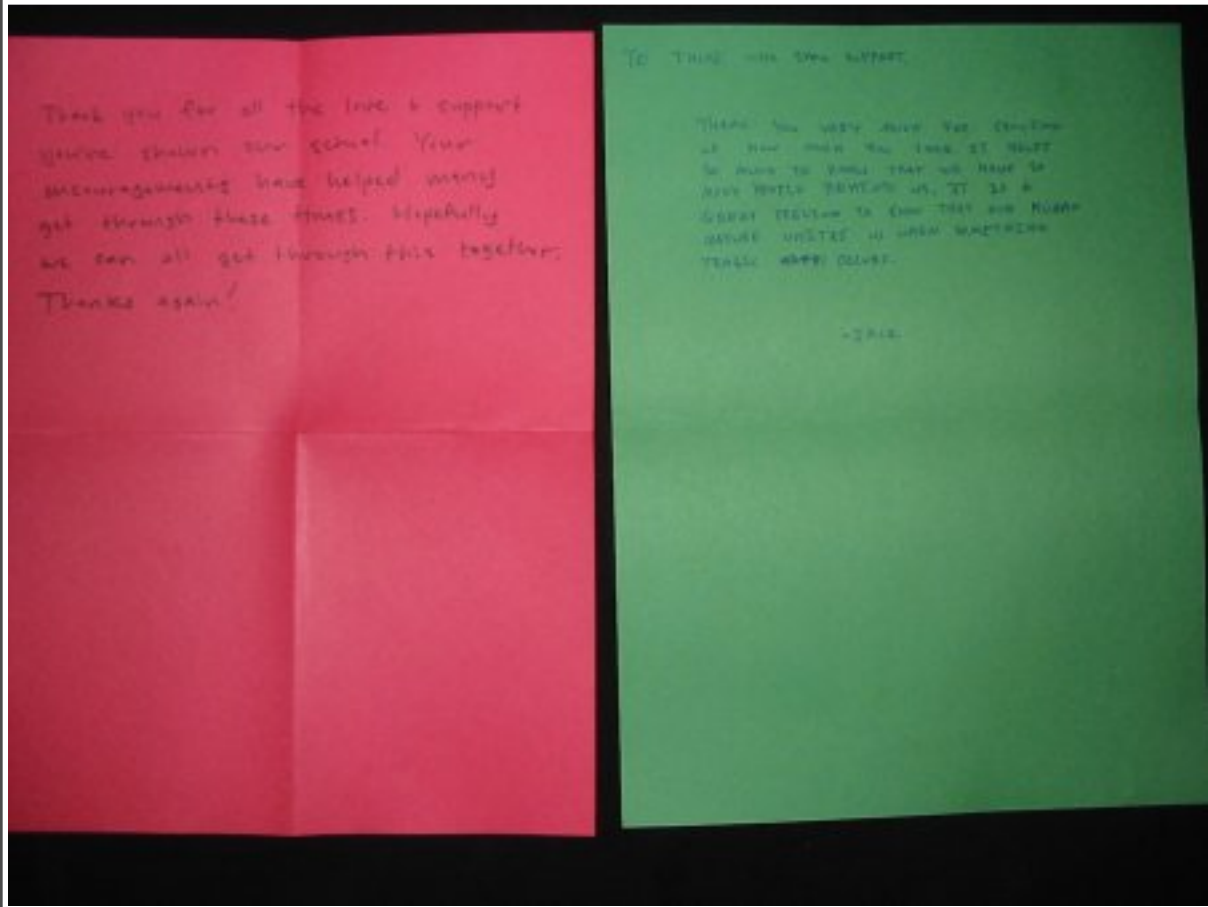 Thank you for all the love & support
you've shown our school. Your
encouragements have helped many
get through these times. Hopefully
we can all get through this together.
Thanks again!
TO THOSE WHO SUPPORT,
THANK YOU VERY MUCH FOR SHOWING
US HOW MUCH YOU CARE IT HELPS
SO MUCH TO KNOW THAT WE HAVE SO
MANY PEOPLE BEHIND US. IT IS A
GREAT TO KNOW THAT OUR HUMAN
NATURE UNITES US WHEN SOMETHING
OCCURS.